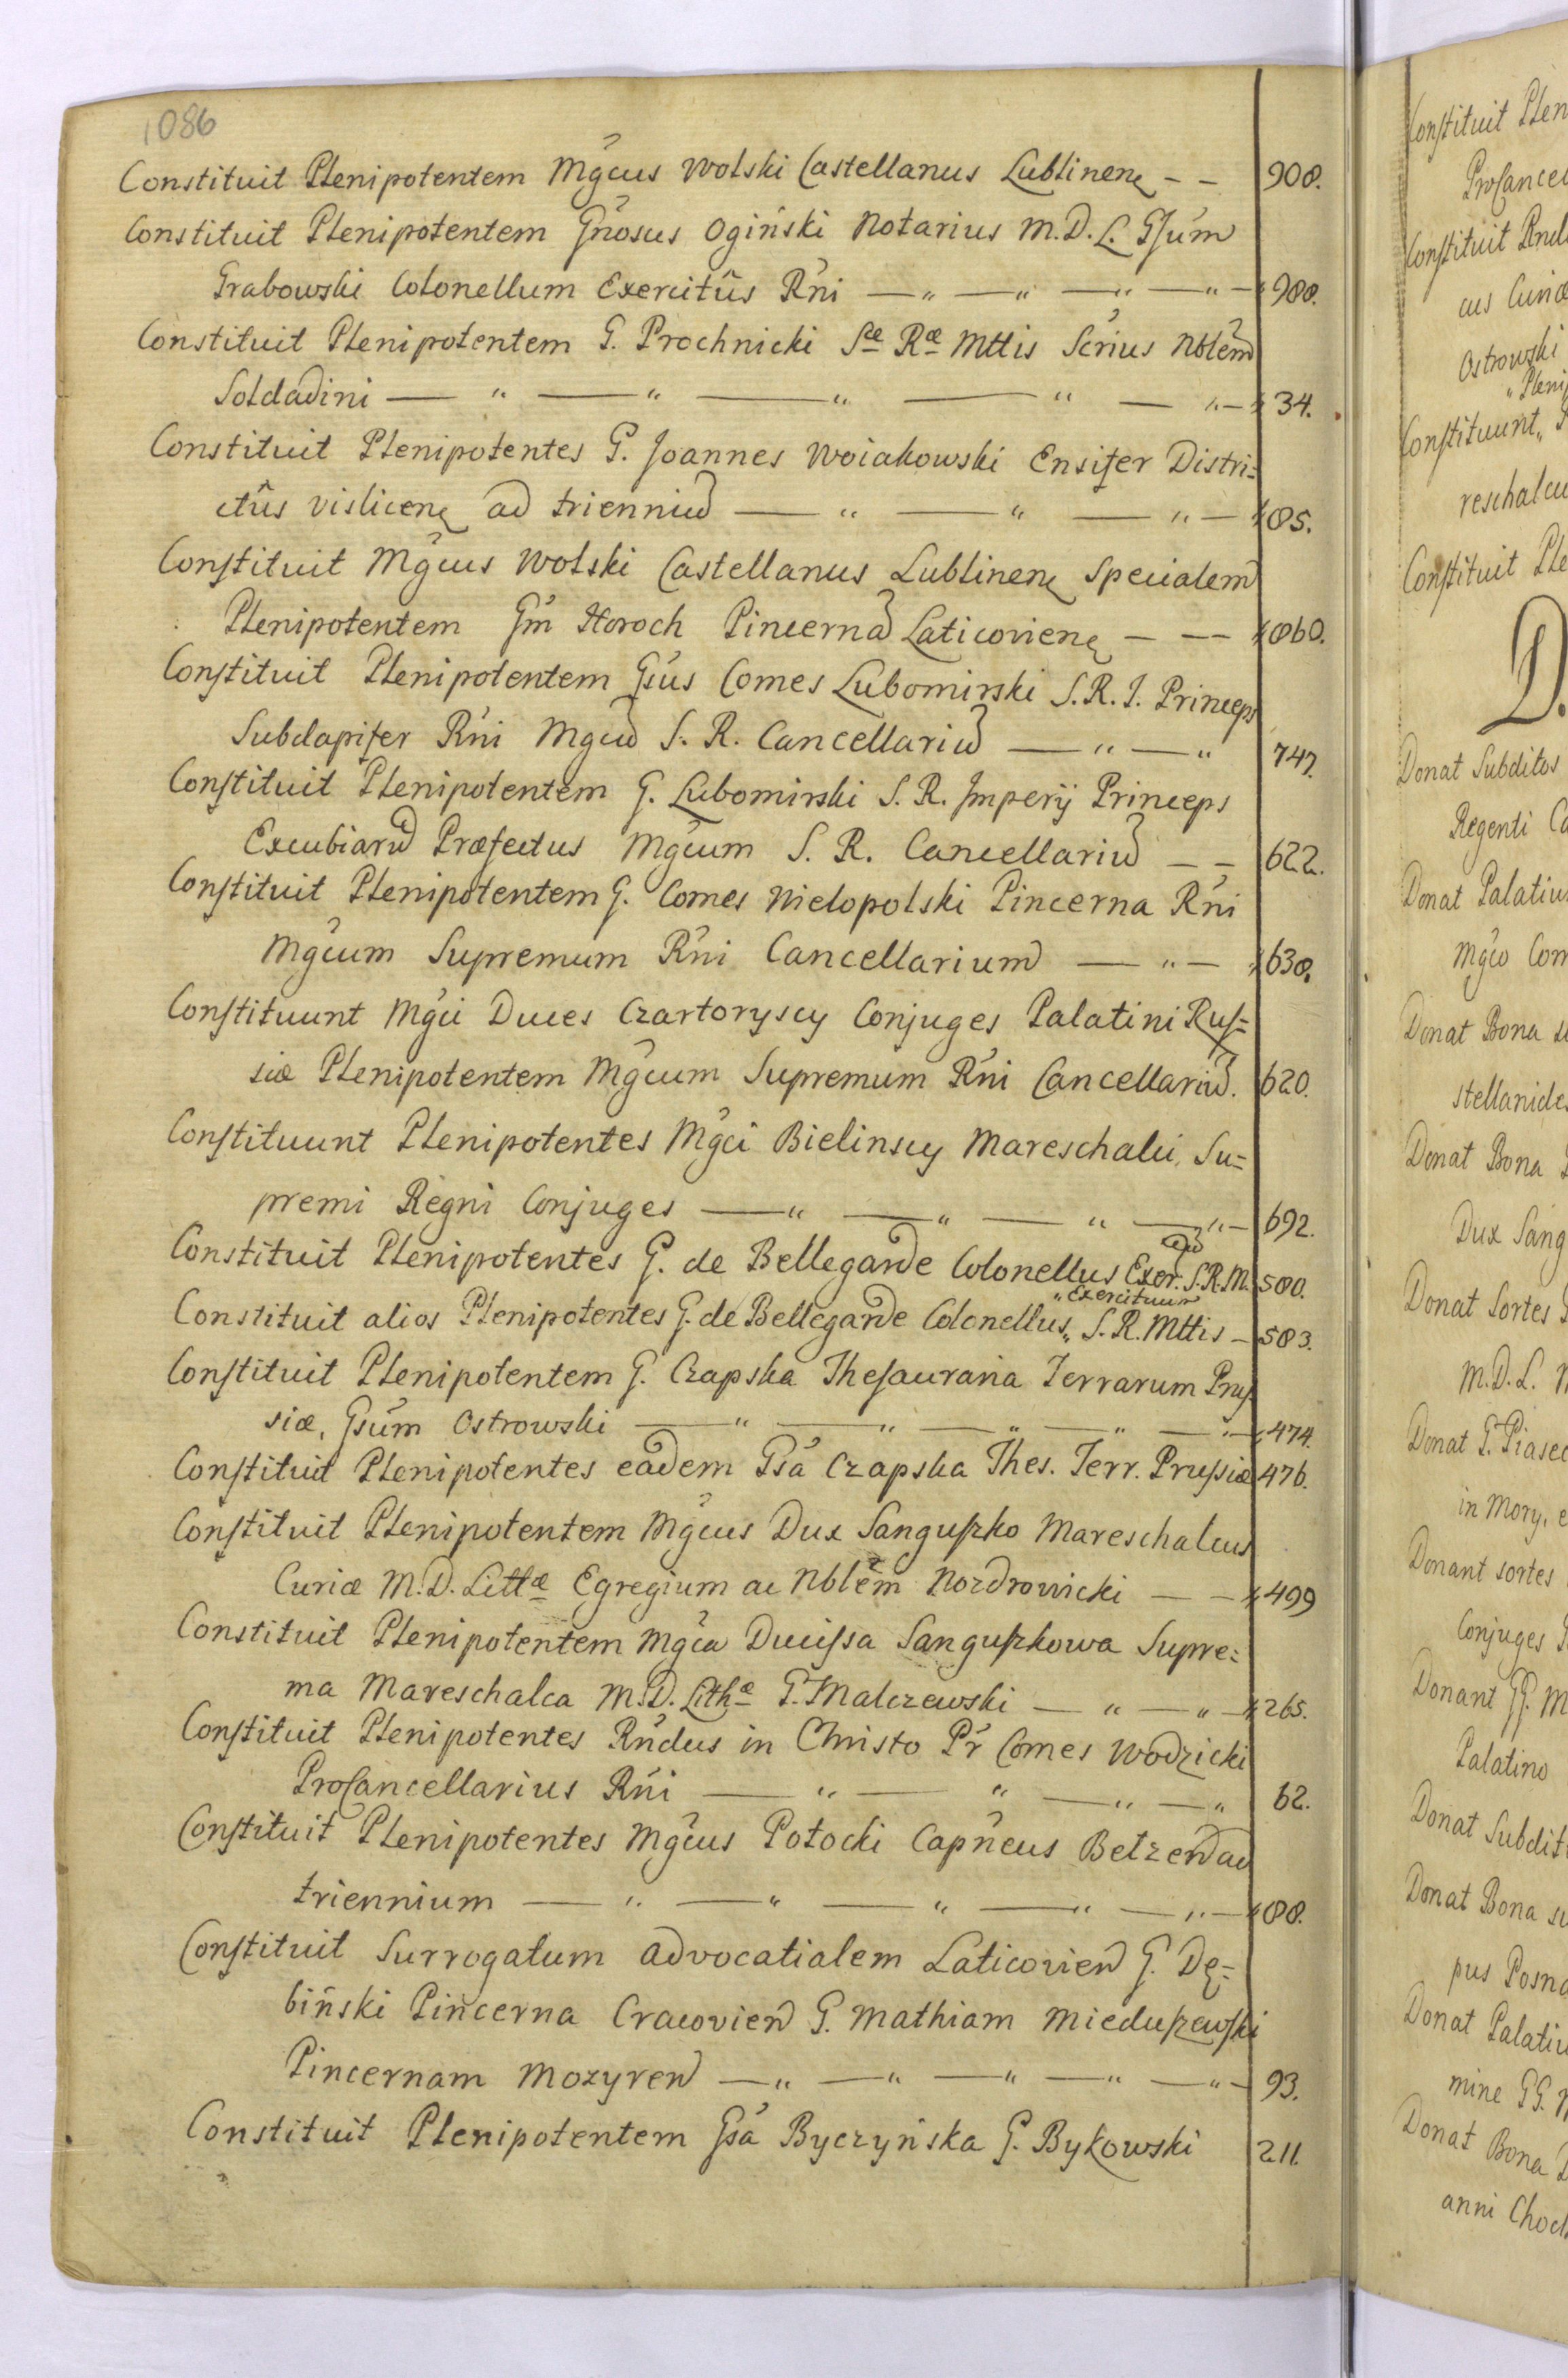 1086
Constituit Plenipotentem Mg̃cus Wolski Castellanus Lublinen̄ – – 908.
Constituit Plenipotentem Gñosus Ogiński Notarius M.D.L. Gsũm
Grabowski Colonellum Exercitûs Rñi — „ — „ — „ — „ — 988.
Constituit Plenipotentem G. Prochnicki Sæ Ræ Mttis Scr̃ius Nblẽm
Soldadini — „ — „ — „ — „ — „ — 34.
Constituit Plenipotentes G. Joannes Woiakowski Ensifer Distri=
ctûs Vislicen̄ ad triennium̄ — „ — „ — „ — 85.
Constituit Mg̃cus Wolski Castellanus Lublinen̄ Specialem
Plenipotentem Gm̃ Horoch Pincernam̄ Laticovien̄ — — — 860.
Constituit Plenipotentem Gsũs Comes Lubomirski S.R.I. Princeps
Subdapifer Rñi Mgcum̄ S. R. Cancellarium̄ — „ — „ 747.
Constituit Plenipotentem G. Lubomirski S. R. Imperij Princeps
Excubiarum̄ Præfectus Mg̃cum S. R. Cancellarium̄ — – 622.
Constituit Plenipotentem G. Comes Wielopolski Pincerna Rñi
Mg̃cum Supremum Rñi Cancellarium — „ — 638.
Constituunt Mg̃ci Duces Czartoryscy Conjuges Palatini Rus=
siæ Plenipotentem Mg̃cum Supremum Rñi Cancellarium̄. 620.
Constituunt Plenipotentes Mg̃ci Bielinscy Mareschalci Su=
premi Regni Conjuges — „ — „ — „ — „ — 692.
Constituit Plenipotentes G. de Bellegarde Colonellus Exer. S.R.M. 580.
„ Exercituum
Constituit alios Plenipotentes G. de Bellegarde Colonellus „ S. R. Mttis — 583.
Constituit Plenipotentem G. Czapska Thesauraria Terrarum Prus
siæ, Gsũm Ostrowski — „ — „ — „ — „ — „ — 474.
Constituit Plenipotentes eadem Gsã Czapska Thes. Terr. Prussiæ 476.
Constituit Plenipotentem Mg̃cus Dux Sanguszko Mareschalcus
Curiæ M.D. Littæ Egregium ac Nblẽm Nozdrowicki — — 499
Constituit Plenipotentem Mg̃ca Ducissa Sanguszkowa Supre=
ma Mareschalca M.D. Lithæ G. Malczewski — „ — „ — 265.
Constituit Plenipotentes Rñdus in Christo Pr̃ Comes Wodzicki
ProCancellarius Rñi — „ — „ — „ — „ 62.
Constituit Plenipotentes Mg̃cus Potocki Capñeus Belzen̄ ad
triennium — „ — „ — „ — „ — „ — 88.
Constituit Surrogatum Advocatialem Laticovien̄ G. Dę=
biński Pincerna Cracovien̄ G. Mathiam Mieduszewski
Pincernam Mozyren̄ — „ — „ — „ — „ — „ — 93.
Constituit Plenipotentem Gsã Byczyńska G. Bykowski 211.
Constituit Plen
ProCancel
Constituit Rnd
cus Curiæ
Ostrowski
„ Plenip
Constituunt „
reschalcu
Constituit Ple
D.
Donat Subditos
Regenti Ca
Donat Palatiu
Mg̃co Com
Donat Bona
stellanide
Donat Bona
Dux Sang
Donat Sortes
M.D.L.
Donat G. Piasec
in Mory,
Donant sortes
Conjuges
Donant GG. M
Palatino
Donat Subdit
Donat Bona su
pus Posna
Donat Palatiu
mine GG.
Donat Bona
anni Choc